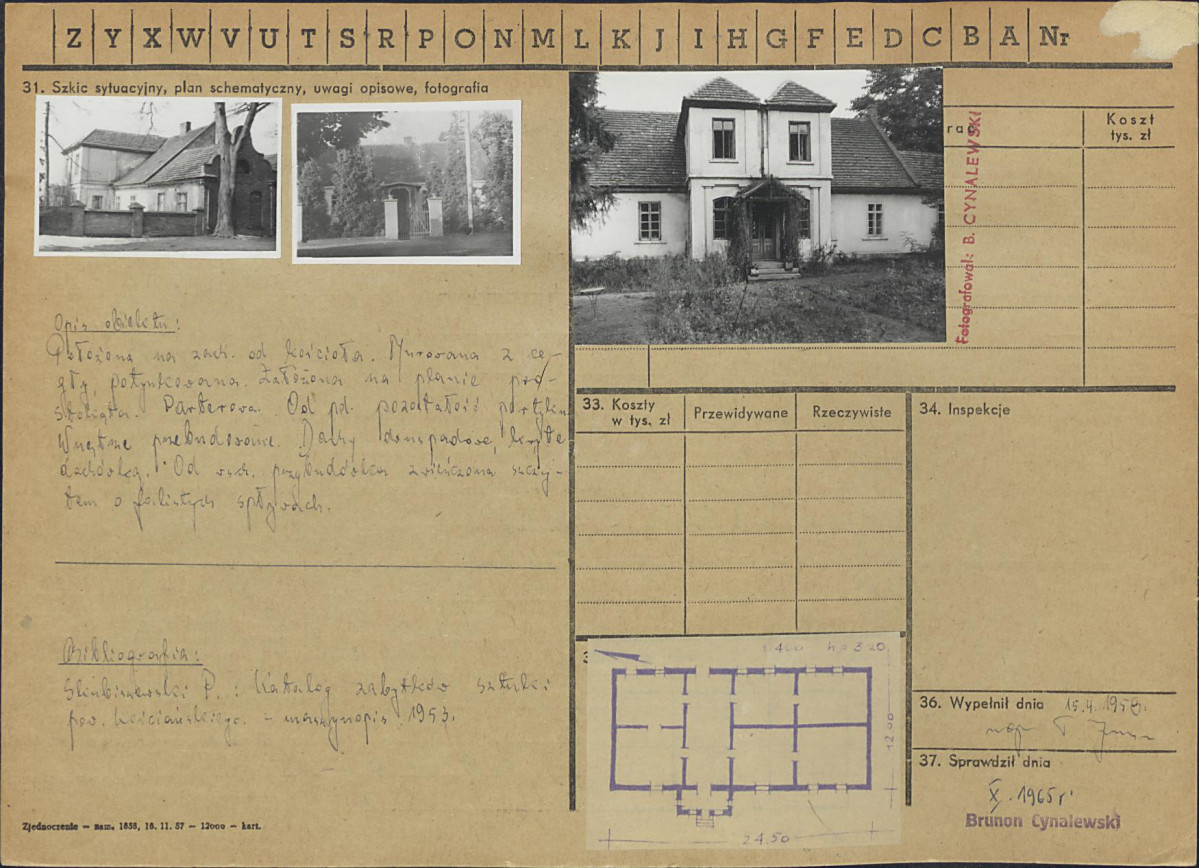 Z Y X W V U T S R P O N M L K J I H G F E D C B A Nr
31. Szkic sytuacyjny, plan schematyczny, uwagi opisowe, fotografia
Koszt
tys. zł
Fotografował: B. CYNALEWSKI
Opis obiektu:
Położona na zach. od kościoła. Murowana z ce-
gły potynkowana. Założona na planie pro-
stokąta. Parterowa. Od pd. pozostałość portyku
Wnętrze przebudowane. Dachy dwuspadowe, kryte
dachówką. Od wsch. przybudówka zwieńczona szczy-
tem o falistych spływach.
Bibliografia:
P.: Katalog zabytków sztuki
pow. Kościańskiego. - maszynopis 1953.
Zjednoczenie — zam. 1858, 16. 11. 57 — 12000 — kart.
33. Koszty
w tys. zł
Przewidywane
Rzeczywiste
34. Inspekcje
1:400 h = 3.20
12.00
24.50
36. Wypełnił dnia 15.4.1958.
mgr T.
37. Sprawdził dnia
X. 1965 r.
Brunon Cynalewski